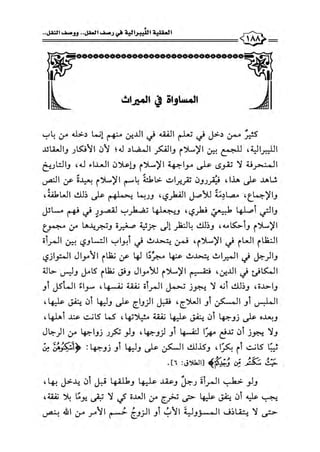 العقلية الليبرالية في رصف العقل.. ووصف النقل..
١٨٨
المساواة في الميراث
كثيرٌ ممن دخل في تعلم الفقه في الدين منهم إنما دخله من باب
الليبرالية، للجمع بين الإسلام والفكر المضاد له؛ لأن الأفكار والعقائد
المنحرفة لا تقوى على مواجهة الإسلام وإعلان العداء له، والتاريخ
شاهد على هذا، فيُقررون تقريرات خاطئة باسم الإسلام بعيدةً عن النص
والإجماع، مصادِمَةً للأصل الفطري، وربما يحملهم على ذلك العاطفةُ،
والتي أصلها طبيعيٌ فطري، ويجعلها تضطرب لقصورٍ في فهم مسائل
الإسلام وأحكامه، وذلك بالنظر إلى جزئية صغيرة وتجريدها من مجموع
النظام العام في الإسلام، فمن يتحدث في أبواب التساوي بين المرأة
والرجل في الميراث يتحدث عنها مجرَّدًا لها عن نظام الأموال المتوازي
المكافئ في الدين، فتقسيم الإسلام للأموال وفق نظام كامل وليس حالة
واحدة، وذلك أنه لا يجوز تحمل المرأة نفقة نفسها، سواءً المأكل أو
الملبس أو المسكن أو العلاج، فقبل الزواج على وليها أن ينفق عليها،
وبعده على زوجها أن ينفق عليها نفقة مثيلاتها، كما كانت عند أهلها،
ولا يجوز أن تدفع مهرًا لنفسها أو لزوجها، ولو تكرر زواجها من الرجال
ثيبًا كانت أم بكرًا، وكذلك السكن على وليها أو زوجها: ﴿أَسْكِنُوهُنَّ مِنْ
حَيْثُ سَكَنتُم مِّن وُجْدِكُمْ﴾ [الطلاق: ٦].
ولو خطب المرأةَ رجلٌ وعقد عليها وطلقها قبل أن يدخل بها،
يجب عليه أن ينفق عليها حتى تخرج من العدة كي لا تبقى يومًا بلا نفقة،
حتى لا يتقاذف المسؤوليةَ الأبُ أو الزوجُ حُسم الأمر من الله بنص